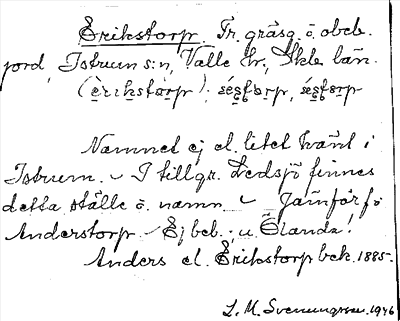 Erikstorp. Fr. gräsg. o. obeb.
jord, Istrum s:n, Valle hr., Skbs län.
(èrikstårp),
Namnet ej el. litet känt i
Istrum. – I tillgr. Hedsjö finnes
detta ställe o. namn. – Jämför fö
Anderstorp – Ej beb.; u. Ölanda!
Anders el. Erikstorp bek. 1885.
S. M. Svenungsson. 1946